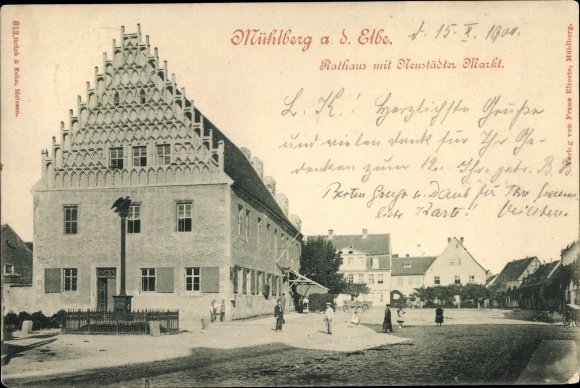 Mühlberg a. d. Elbe.
Rathaus mit Neustädter Markt.
d. 15. X. 1900.
L. K.! Herzlichste Grüße
und vielen Dank für Ihr Ge-
denken zum 12.
Besten Gruß u. Dank für Ihre
Karte!
812, Brück & Sohn, Meissen.
Verlag von Franz Mühlberg.